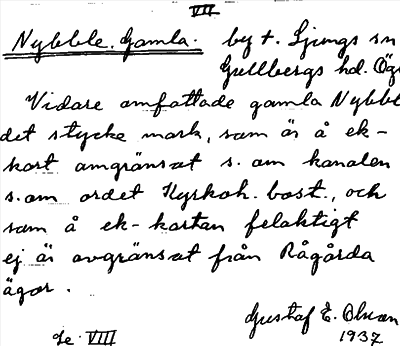 VII
Nybble. Gamla. by t. Ljungs sn
Gullbergs hd. Ög
Vidare omfattade gamla Nybbl
det stycke mark, som är å ek-
kart omgränsat s. om kanalen
s. om ordet Kyrkoh. bost., och
som å ek-kartan felaktigt
ej är avgränsat från Rågårda
ägor.
Gustaf E. Olsson
1937
Se VIII